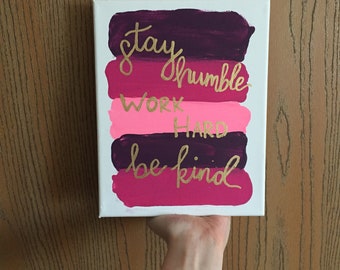 stay
humble
WORK
HARD
be kind